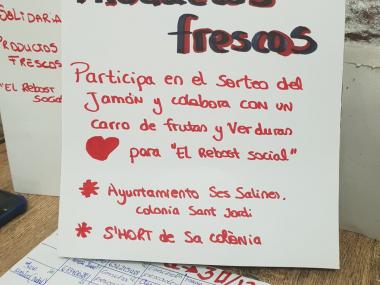 SOLIDARIA
PRODUCTOS
FRESCOS
"El Rebost
social
frescos
Participa en el sorteo del
Jamón y colabora con un
carro de frutas y Verduras
para "El Rebost social"
* Ayuntamiento Ses Salines.
colonia Sant Jordi
* S'HORT de Sa colònia